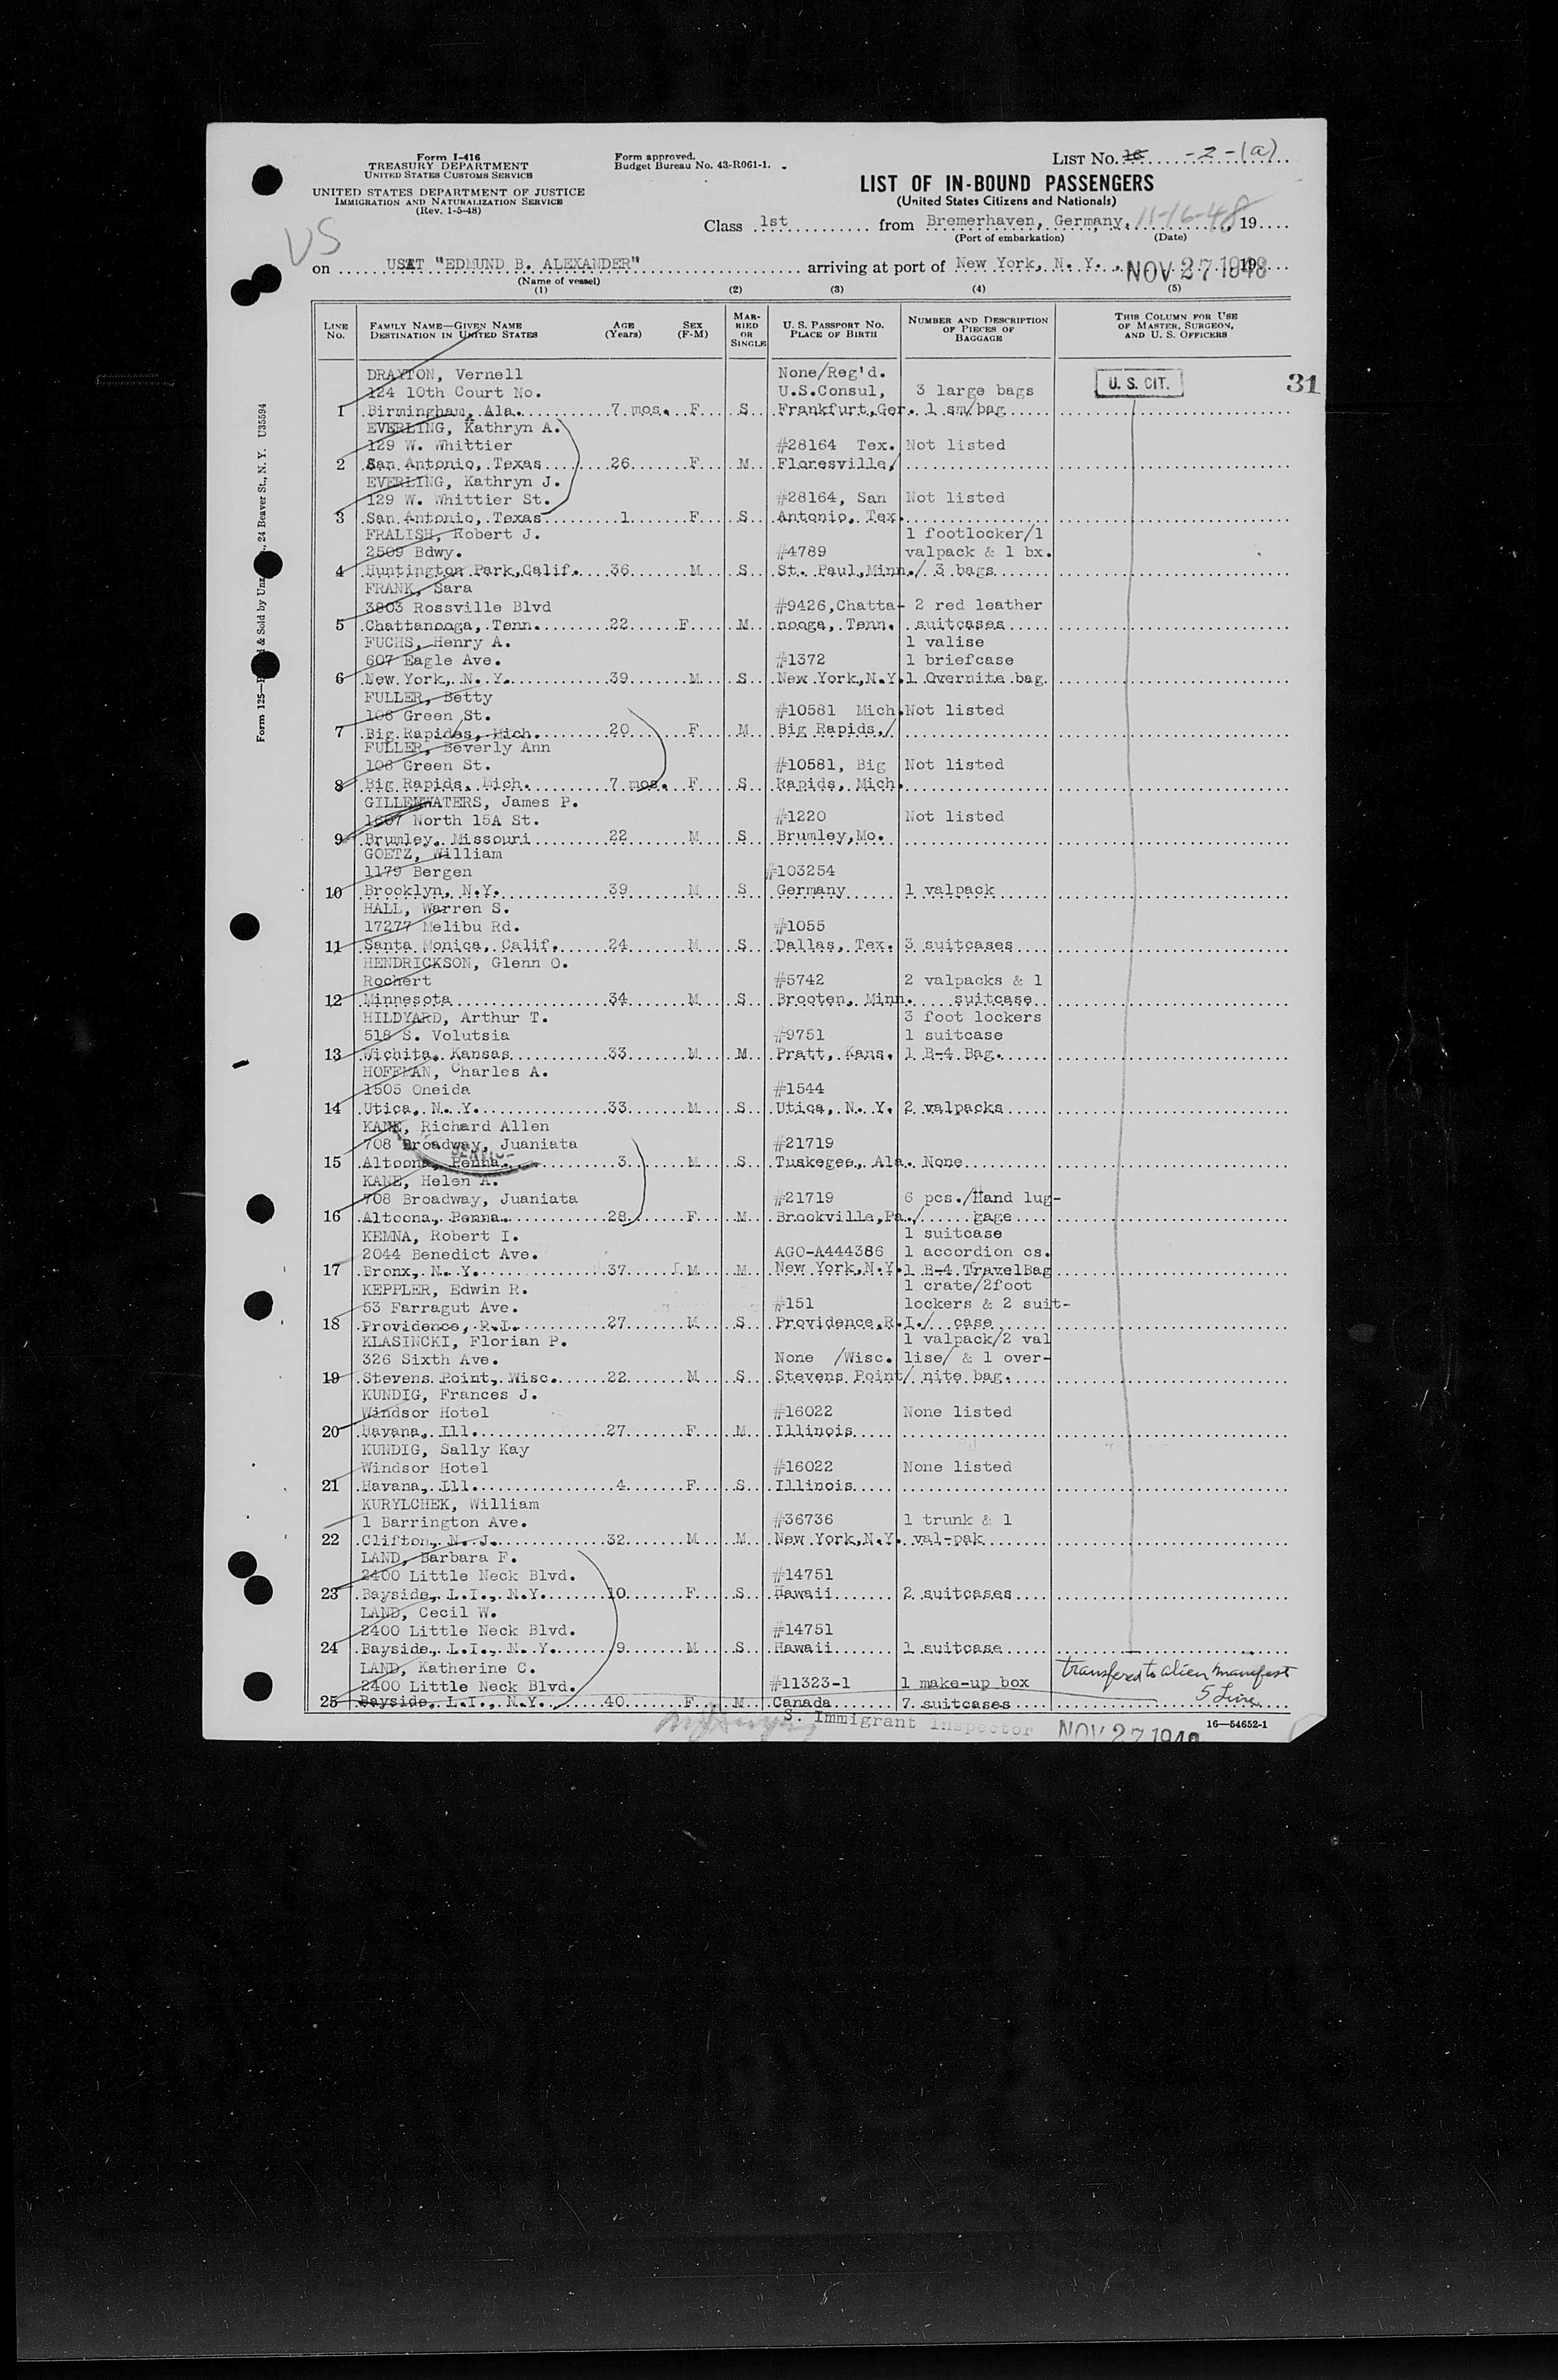 Form I-416
TREASURY DEPARTMENT
UNITED STATES CUSTOMS SERVICE
UNITED STATES DEPARTMENT OF JUSTICE
IMMIGRATION AND NATURALIZATION SERVICE
(Rev. 1-5-48)
Form approved.
Budget Bureau No. 43-R061-1.
LIST NO. -2-(a)
LIST OF IN-BOUND PASSENGERS
(United States Citizens and Nationals)
VS
Class 1st from Bremerhaven, Germany, 11-16-48, 19
(Port of embarkation) (Date)
on USAT "EDMUND B. ALEXANDER" arriving at port of New York, N. Y., NOV 27 1948 19
(Name of vessel)
(1) (2) (3) (4) (5)
LINE NO. FAMILY NAME—GIVEN NAME DESTINATION IN UNITED STATES AGE (Years) SEX (F-M) MARRIED OR SINGLE U. S. PASSPORT NO. PLACE OF BIRTH NUMBER AND DESCRIPTION OF PIECES OF BAGGAGE THIS COLUMN FOR USE OF MASTER, SURGEON, AND U. S. OFFICERS
DRAYTON, Vernell None/Reg'd.
124 10th Court No. U.S.Consul, 3 large bags U. S. CIT. 31
1 Birmingham, Ala. 7 mos. F S Frankfurt,Ger. 1 sm/bag
EVERLING, Kathryn A.
129 W. Whittier #28164 Tex. Not listed
2 San Antonio, Texas 26 F M Floresville/
EVERLING, Kathryn J.
129 W. Whittier St. #28164, San Not listed
3 San Antonio, Texas 1 F S Antonio, Tex.
FRALISH, Robert J. 1 footlocker/1
2509 Bdwy. #4789 valpack & 1 bx.
4 Huntington Park,Calif. 36 M S St. Paul,Minn./ 3 bags
FRANK, Sara
3803 Rossville Blvd #9426,Chatta- 2 red leather
5 Chattanooga, Tenn. 22 F M nooga, Tenn. suitcases
FUCHS, Henry A. 1 valise
607 Eagle Ave. #1372 1 briefcase
6 New York, N. Y. 39 M S New York,N.Y. 1 Overnite bag
FULLER, Betty
106 Green St. #10581 Mich. Not listed
7 Big Rapides, Mich. 20 F M Big Rapids,/
FULLER, Beverly Ann
106 Green St. #10581, Big Not listed
8 Big Rapids, Mich. 7 mos. F S Rapids, Mich.
GILLENWATERS, James P.
1607 North 15A St. #1220 Not listed
9 Brumley, Missouri 22 M S Brumley,Mo.
GOETZ, William
1179 Bergen #103254
10 Brooklyn, N.Y. 39 M S Germany 1 valpack
HALL, Warren S.
17277 Melibu Rd. #1055
11 Santa Monica, Calif. 24 M S Dallas, Tex. 3 suitcases
HENDRICKSON, Glenn O.
Rochert #5742 2 valpacks & 1
12 Minnesota 34 M S Brooten, Minn. suitcase
HILDYARD, Arthur T. 3 foot lockers
518 S. Volutsia #9751 1 suitcase
13 Wichita, Kansas 33 M M Pratt, Kans. 1 B-4 Bag.
HOFFMAN, Charles A.
1505 Oneida #1544
14 Utica, N. Y. 33 M S Utica, N. Y. 2 valpacks
KANE, Richard Allen
708 Broadway, Juaniata #21719
15 Altoona, Penna. 3 M S Tuskegee, Ala. None
KANE, Helen A.
708 Broadway, Juaniata #21719 6 pcs./Hand lug-
16 Altoona, Penna. 28 F M Brookville,Pa./ gage
KEMNA, Robert I. 1 suitcase
2044 Benedict Ave. AGO-A444386 1 accordion cs.
17 Bronx, N. Y. 37 M M New York,N.Y. 1 B-4 TravelBag
KEPPLER, Edwin R. 1 crate/2foot
53 Farragut Ave. #151 lockers & 2 suit-
18 Providence, R.I. 27 M S Providence,R.I./ case
KLASINCKI, Florian P. 1 valpack/2 val
326 Sixth Ave. None /Wisc. lise/ & 1 over-
19 Stevens Point, Wisc. 22 M S Stevens Point/ nite bag.
KUNDIG, Frances J.
Windsor Hotel #16022 None listed
20 Havana, Ill. 27 F M Illinois
KUNDIG, Sally Kay
Windsor Hotel #16022 None listed
21 Havana, Ill. 4 F S Illinois
KURYLCHEK, William
1 Barrington Ave. #36736 1 trunk & 1
22 Clifton, N. J. 32 M M New York,N.Y. val-pak
LAND, Barbara F.
2400 Little Neck Blvd. #14751
23 Bayside, L.I., N.Y. 10 F S Hawaii 2 suitcases
LAND, Cecil W.
2400 Little Neck Blvd. #14751
24 Bayside, L.I., N. Y. 9 M S Hawaii 1 suitcase
LAND, Katherine C. transfered to alien manefest
2400 Little Neck Blvd. #11323-1 1 make-up box 5 Line
25 Bayside, L.I., N.Y. 40 F M Canada 7 suitcases
S. Immigrant Inspector NOV 27 1948 16—54652-1
Form 125— & Sold by Unz , 24 Beaver St., N. Y. U35594